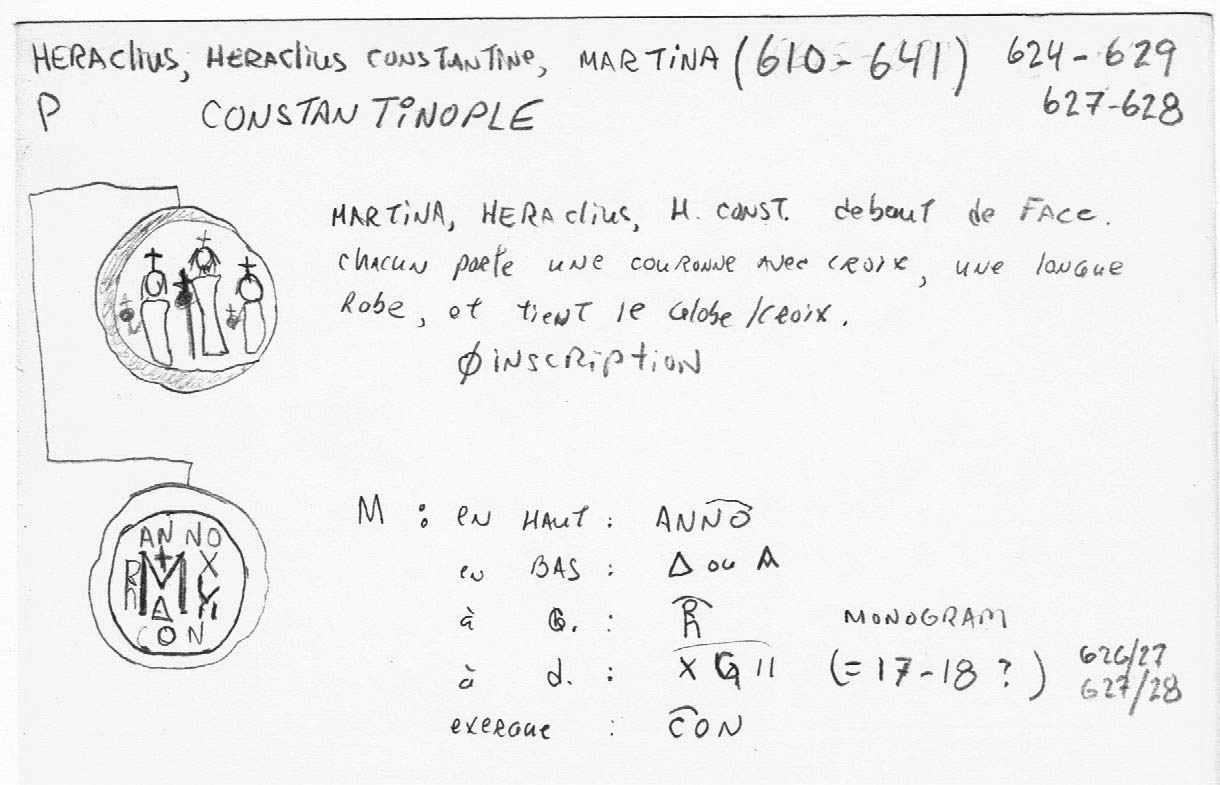 HERAclius, HERAClius CONSTANTiNe, MARTiNA (610-641) 624-629
P CONSTANTiNOPLE 627-628
MARTiNA, HERAclius, H. CONST. debout de FACe.
chacun porte une couronne avec croix, une longue
Robe, et tient le Globe/croix.
Ø iNSCRiptiON
AN NO
R M X
h Δ
CON
M : eN HAUT : ANNO
eN BAS : Δ ou A
à G. : R h MONOGRAM
à d. : X G II (= 17-18 ?) 626/27
627/28
exergue : CON